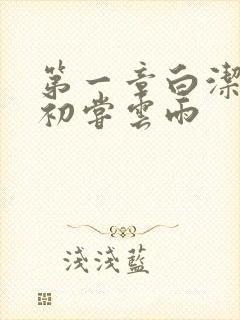 第一章白潔
初嘗雲雨
淺淺藍